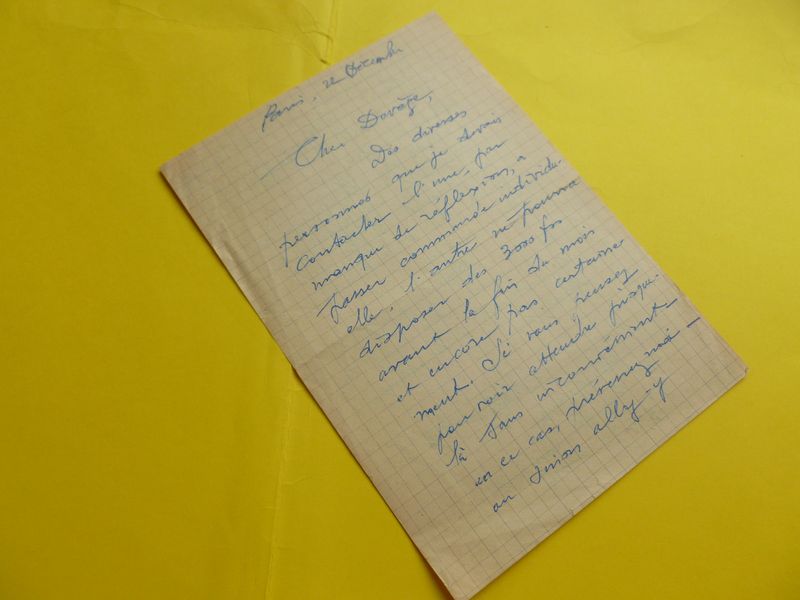 Paris, 22 Décembre
Cher Dovaze,
Des diverses
personnes que je devais
contacter l'une, par
manque de réflexion, a
passer commande individu-
elle, l'autre ne trouvera
disposer des 3000 frs
avant la fin du mois
et encore pas certaine
ment. Si vous pensez
pouvoir attendre jusque
là sans inconvénient
en ce cas, prévenez moi -
ou sinon allez-y